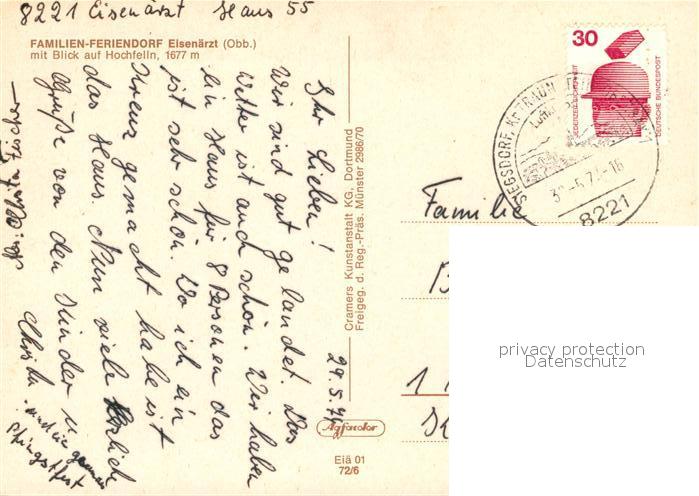 8221 Eisenärzt Haus 55
FAMILIEN-FERIENDORF Eisenärzt (Obb.)
mit Blick auf Hochfelln, 1677 m
29.5.74
Ihr Lieben!
Wir sind gut gelandet. Das
Wetter ist auch schön. Wir haben
ein Haus für 8 Personen das
ist sehr schön. Wo ich ein
Kreuz gemacht habe ist
das Haus. Nun viele herzlich
Grüße von den Kinder u
Christa
Fischer
Pfingstfest
Cramers Kunstanstalt KG, Dortmund
Freigeg. d. Reg.-Präs. Münster 2986/70
Agfacolor
Eiä 01
72/6
30
JEDERZEIT SICHERHEIT
DEUTSCHE BUNDESPOST
SIEGSDORF
8221
Familie
privacy protection
Datenschutz